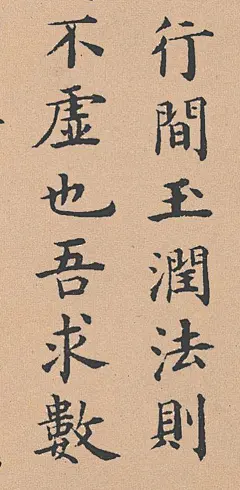 行間玉潤法則
不虛也吾求數